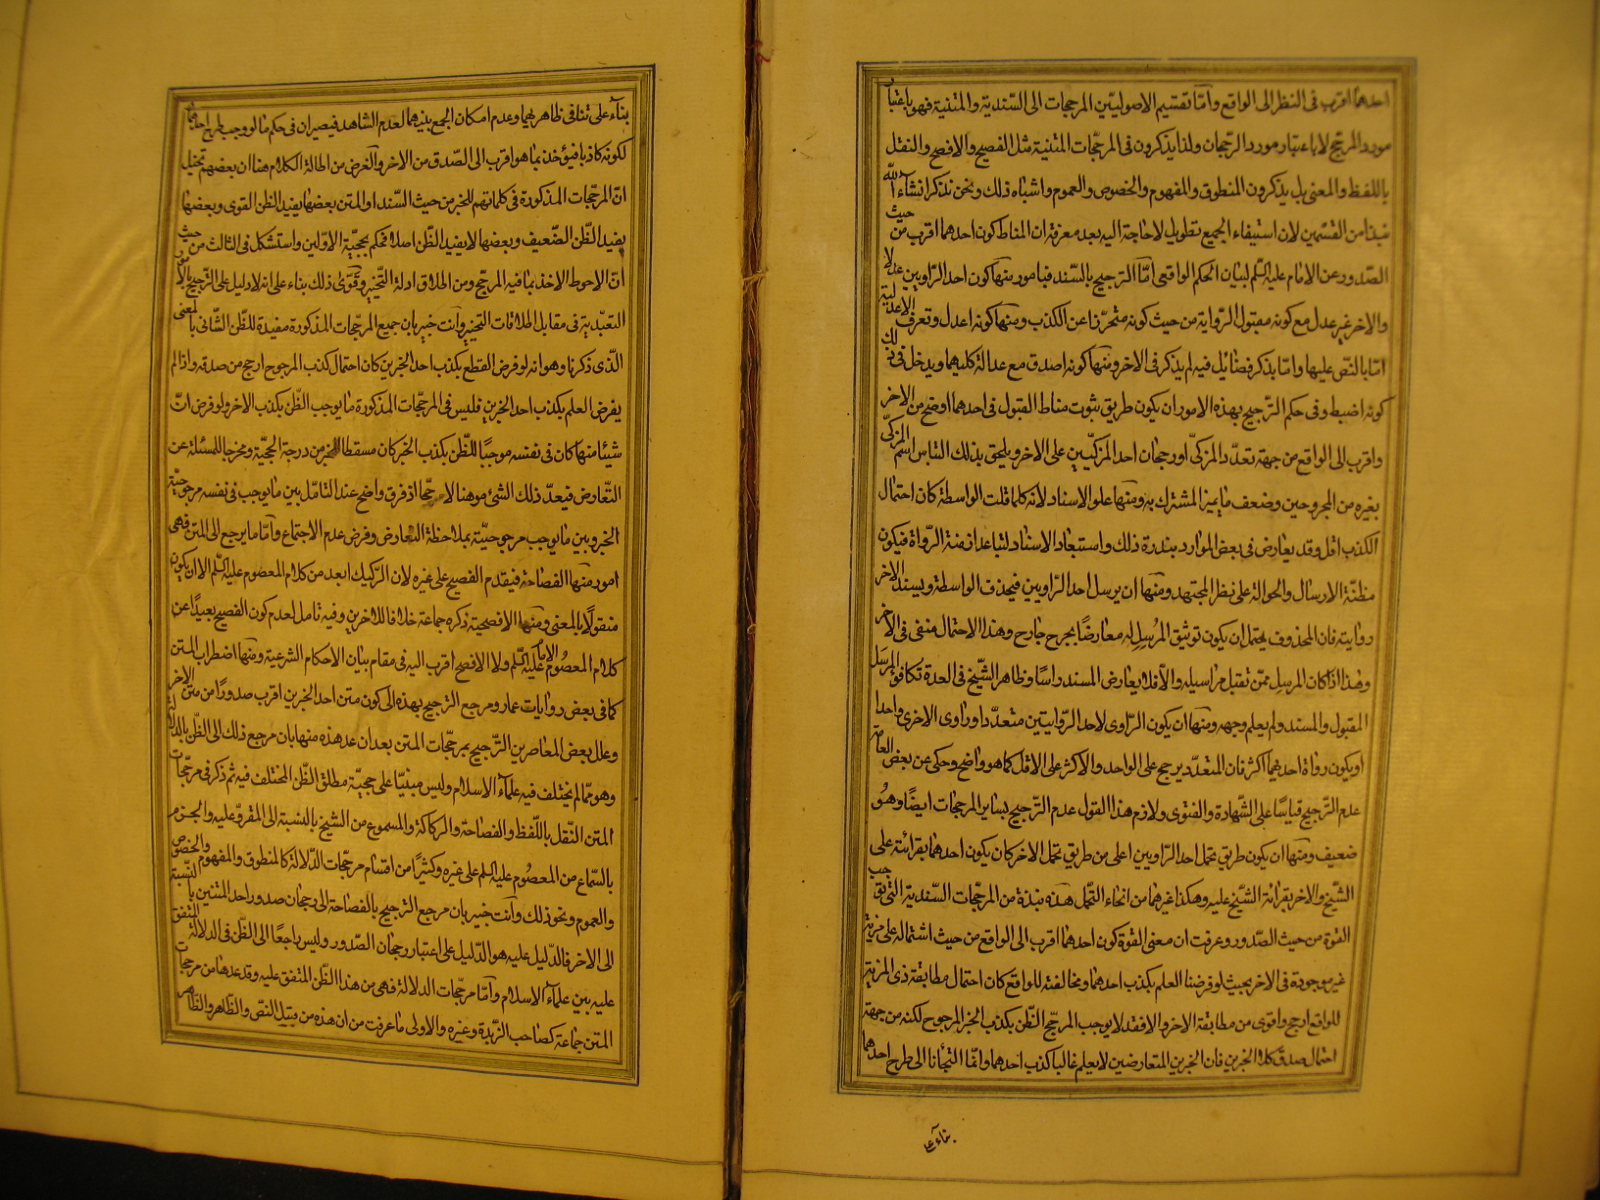 احدهما اقرب فى النظر الى الواقع وامّا تقسيم الاصوليّين المرجحات الى السّنديّة والمتنيّة فهو باعتبار
مورد المرجّح لا باعتبار مورد الرجحان ولذا يذكرون فى المرجّحات المتنيّة مثل الفصيح والافصح والنقل
باللفظ والمعنى بل يذكرون المنطوق والمفهوم والخصوص والعموم واشباه ذلك ونحن نذكر انشآء الله
نبذا من القسمين لان استيفاء الجميع تطويل لا حاجة اليه بعد معرفة ان المناط كون احدهما اقرب من حيث
الصّدور عن الامام عليه السّلم لبيان الحكم الواقعى امّا الترجيح بالسّند فبامور منها كون احد الرّاويين عدلا
والاخر غير عدل مع كونه مقبول الرّواية من حيث كونه متحرّزا عن الكذب ومنها كونه اعدل وتعرف الاعدلية
امّا بالنصّ عليها وامّا بذكر فضائل فيه لم يذكر فى الاخر ومنها كونه اصدق مع عدالة كليهما ويدخل فى ذلك
كونه اضبط وفى حكم الترجيح بهذه الامور ان يكون طريق ثبوت مناط القبول فى احدهما اوضح من الاخر
واقرب الى الواقع من جهة تعدّد المزكّى او رجحان احد المزكّيين على الاخر ويلحق بذلك التباس اسم المزكّى
بغيره من المجروحين وضعف ما يميز المشترك به ومنها علو الاسناد لانه كلما قلت الواسطة كان احتمال
الكذب اقل وقد يعارض فى بعض الموارد بندرة ذلك واستبعاد الاسناد لتباعد ازمنة الرّواة فيكون
مظنّة الارسال والحوالة على نظر المجتهد ومنها ان يرسل احد الرّاويين فيحذف الواسطة ويسند الاخر
روايته فان المحذوف يحتمل ان يكون توثيق المُرسِل له معارضًا بجرح جارح وهذا الاحتمال منفى فى الاخر
وهٰذا اذا كان المرسِل ممّن تقبل مراسيله والّا فلا يعارض المسند راسًا وظاهر الشّيخ فى العدة تكافؤ المرسَل
المقبول والمسند ولم يعلم وجهه ومنها ان يكون الرّاوى لاحد الرّوايتين متعدّدا وراوى الاخرى واحدا
او يكون رواة احديهما اكثر فان المتعدّد يرجح على الواحد والاكثر على الاقل كما هو واضح وحكى عن بعض العامّة
عدم الترجيح قياسًا على الشّهادة والفتوى ولازم هذا القول عدم الترجيح بساير المرجحات ايضًا وهو
ضعيف ومنها ان يكون طريق تحمل احد الرّاويين اعلى من طريق تحمل الاخر كان يكون احدهما بقرائته على
الشّيخ والاخر بقرائة الشّيخ عليه وهكذا غيرهما من انحاء التحمّل هذه نبذة من المرجّحات السّنديّة التى توجب
القوّة من حيث الصّدور وعرفت ان معنى القوّة كون احدهما اقرب الى الواقع من حيث اشتماله على مزيّة
غير موجودة فى الاخر بحيث لو فرضنا العلم بكذب احدهما ومخالفته للواقع كان احتمال مطابقة ذى المزيّة
للواقع ارجح واقوى من مطابقة الاخر والّا فقد لا يوجب المرجّح الظّن بكذب الخبر المرجوح لكنه من جهة
احتمال صدق كلا الخبرين فان الخبرين المتعارضين لا يعلم غالبا كذب احدهما وانّما التجأنا الى طرح احدهما
بناآء على
بناآء على تنافى ظاهريهما وعدم امكان الجمع بينهما لعدم الشاهد فيصيران فى حكم ما لو وجب طرح احدهما
لكونه كاذبا فيؤخذ بما هو اقرب الى الصّدق من الاخر والغرض من اطالة الكلام هنا ان بعضهم تخيل
انّ المرجّحات المذكورة فى كلماتهم للخبر من حيث السّند او المتن بعضها يفيد الظّن القوى وبعضها
يفيد الظّن الضّعيف وبعضها لا يفيد الظّن اصلا فحكم بحجيّة الاوّلين واستشكل فى الثالث من حيث
انّ الاحوط الاخذ بما فيه المرجّح ومن اطلاق ادلة التّخيير وقوّى ذلك بناء على انه لا دليل على الترجيح بالامور
التعبّديّة فى مقابل اطلاقات التخيير وانت خبير بان جميع المرجّحات المذكورة مفيدة للظّن الشّانى بالمعنى
الّذى ذكرنا وهو انه لو فرض القطع بكذب احد الخبرين كان احتمال كذب المرجوح ارجح من صدقه واذا لم
يفرض العلم بكذب احد الخبرين فليس فى المرجّحات المذكورة ما يوجب الظّن بكذب الاخر ولو فرض انّ
شيئا منها كان فى نفسه موجبًا للظّن بكذب الخبر كان مسقطا للخبر من درجة الحجيّة ومخرجا للمسئلة عن
التّعارض فيعدّ ذلك الشئ موهنا لا مرجّحا اذ فرق واضح عند التامّل بين ما يوجب فى نفسه مرجوحيّة
الخبر وبين ما يوجب مرجوحيّته بملاحظة التعارض وفرض عدم الاجتماع وامّا ما يرجع الى المتن فهى
امور منها الفصاحة فيقدم الفصيح على غيره لان الركيك ابعد من كلام المعصوم عليه السّلم الا ان يكون
منقولًا بالمعنى ومنها الافصحية ذكره جماعة خلافا للاخرين وفيه تامل لعدم كون الفصيح بعيدًا عن
كلام المعصوم عليه السّلم ولا الافصح اقرب اليه فى مقام بيان الاحكام الشرعية ومنها اضطراب المتن
كما فى بعض روايات عمار ومرجع الترجيح بهذه الى كون متن احد الخبرين اقرب صدورًا من متن الاخر
وعلل بعض المعاصرين الترجيح بمرجّحات المتن بعد ان عد هذه منها بان مرجع ذلك الى الظّن بالدلالة
وهو ممّا لم يختلف فيه علمآء الاسلام وليس مبنيّا على حجيّة مطلق الظّن المختلف فيه ثم ذكر فى مرجّحات
المتن النّقل باللّفظ والفصاحة والركاكة والمسموع من الشيخ بالنسبة الى المقروّ عليه والجزم
بالسّماع من المعصوم عليه السلم على غيره وكثيرًا من اقسام مرجّحات الدّلالة كالمنطوق والمفهوم والخصوص
والعموم ونحو ذلك وانت خبير بان مرجع الترجيح بالفصاحة الى رجحان صدور احد المتنين بالنّسبة
الى الاخر فالدّليل عليه هو الدّليل على اعتبار رجحان الصّدور وليس راجعًا الى الظّن فى الدلالة المتفق
عليه بين علمآء الاسلام وامّا مرجّحات الدلالة فهى من هذا الظّن المتفق عليه وقد عدها من مرجحات
المتن جماعة كصاحب الزّبدة وغيره والاولى ما عرفت من ان هذه من قبيل النصّ والظّاهر والظّاهر